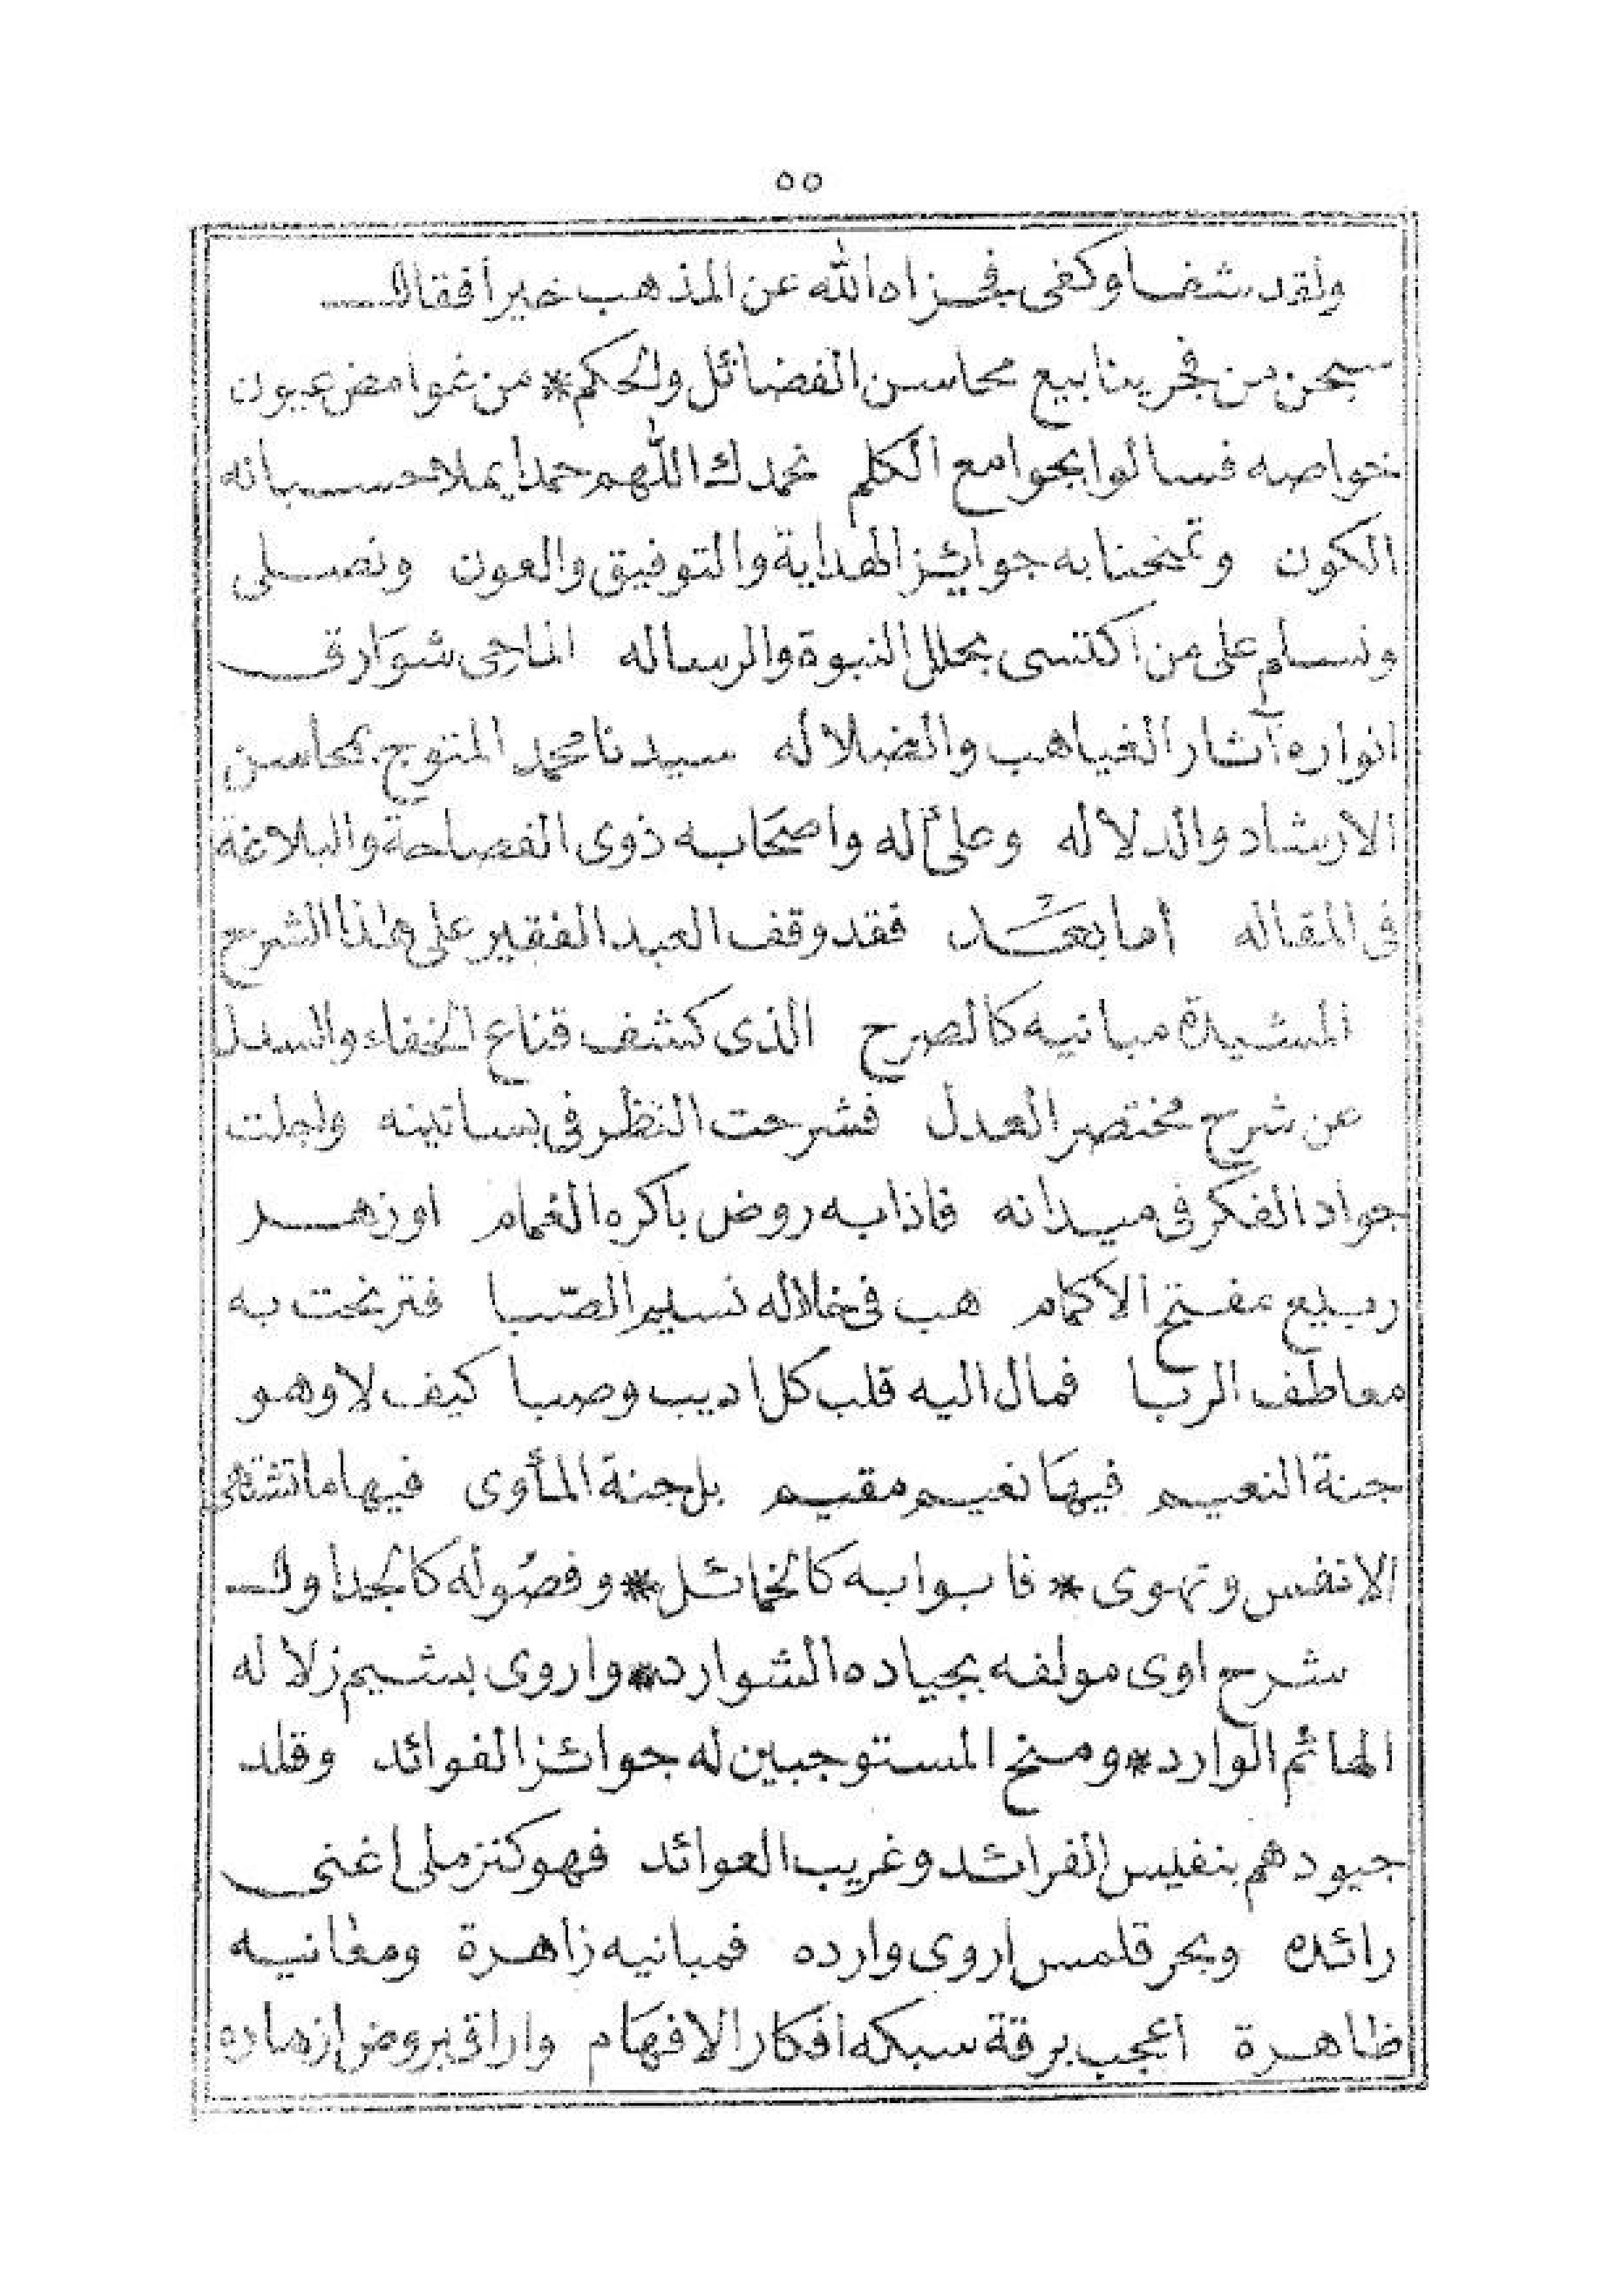 ٥٥
ولقد شفا وكفى فجزاه الله عن المذهب خيرا فقال
سبحن من فجر ينابيع محاسن الفضائل والحكم * من غوامض عيون
خواصه فسالوا بجوامع الكلم نحمدك اللهم حمدا يملا حسبانه
الكون وتمنحنا به جوائز الهداية والتوفيق والعون ونصلى
ونسلم على من اكتسى بحلل النبوة والرساله الماحى شوارق
انواره آثار الغياهب والضلاله سيدنا محمد المتوج بمحاسن
الارشاد والدلاله وعلى آله واصحابه ذوى الفصاحة والبلاغة
فى المقاله أما بعد فقد وقف العبد الفقير على هذا الشرح
المشيدة مبانيه كالصرح الذى كشف قناع الخفاء والسدل
عن شرح مختصر العدل فشرحت النظر فى بساتينه واجلت
جواد الفكر فى ميدانه فاذا به روض باكره الغمام اوزهر
ربيع مفتح الاكمام هب فى خلاله نسيم الصّبا فترنحت به
معاطف الربا فمال اليه قلب كل اديب وصبا كيف لا وهو
جنة النعيم فيها نعيم مقيم بل جنة المأوى فيها ما تشتهى
الانفس وتهوى * فابوابه كالخمائل * وفصُوله كالجداول
شرح اوى مولفه بجياده الشوارد * واروى بشيم زلاله
الهائم الوارد * ومنح المستوجبين له جوائز الفوائد وقلد
جيودهم بنفيس الفرائد وغريب العوائد فهو كنز ملى اغنى
رائده وبحر قلمس اروى وارده فمبانيه زاهرة ومعانيه
ظاهرة أعجب برقة سبكه افكار الافهام واراق بروض ازهاره